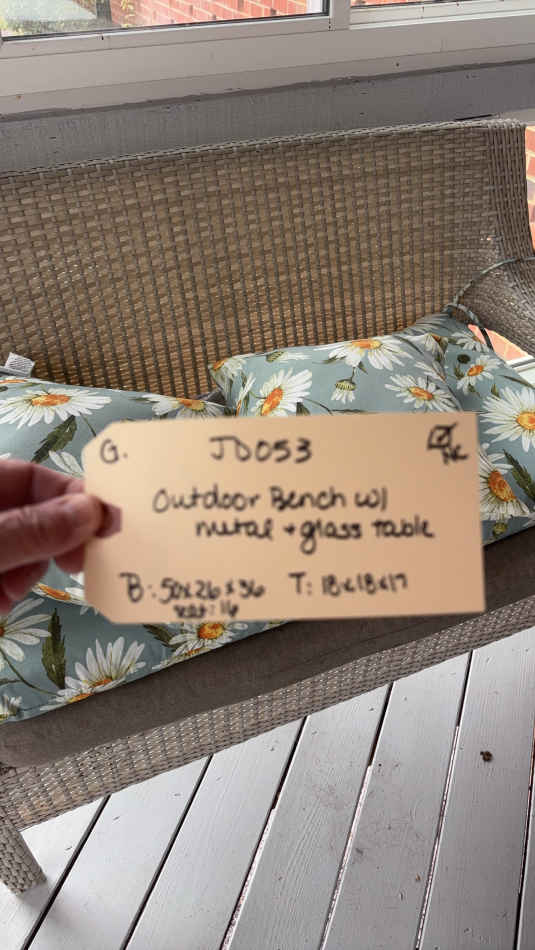 G. JD053
NC
Outdoor Bench w/
metal + glass table
B: 50x26x36 T: 18x18x17
seat: 16